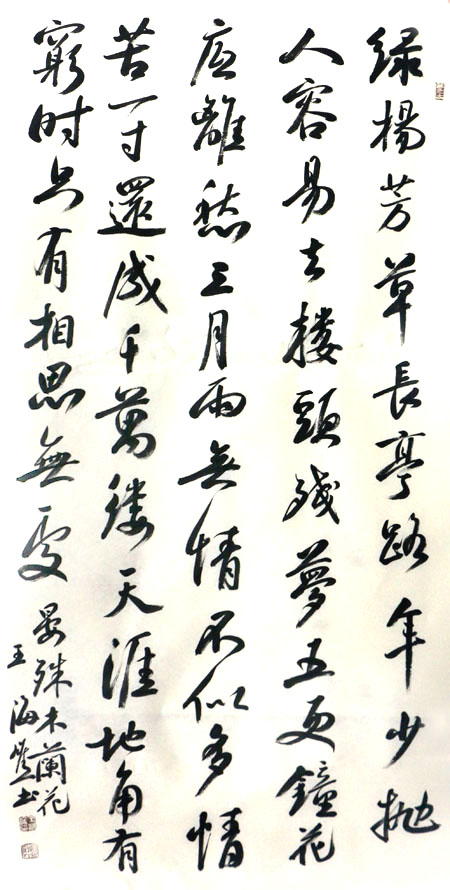 绿楊芳草長亭路年少抛
人容易去楼頭残夢五更鐘花
底離愁三月雨無情不似多情
苦一寸還成千萬缕天涯地角有
窮时只有相思無處
晏殊木蘭花
王海书